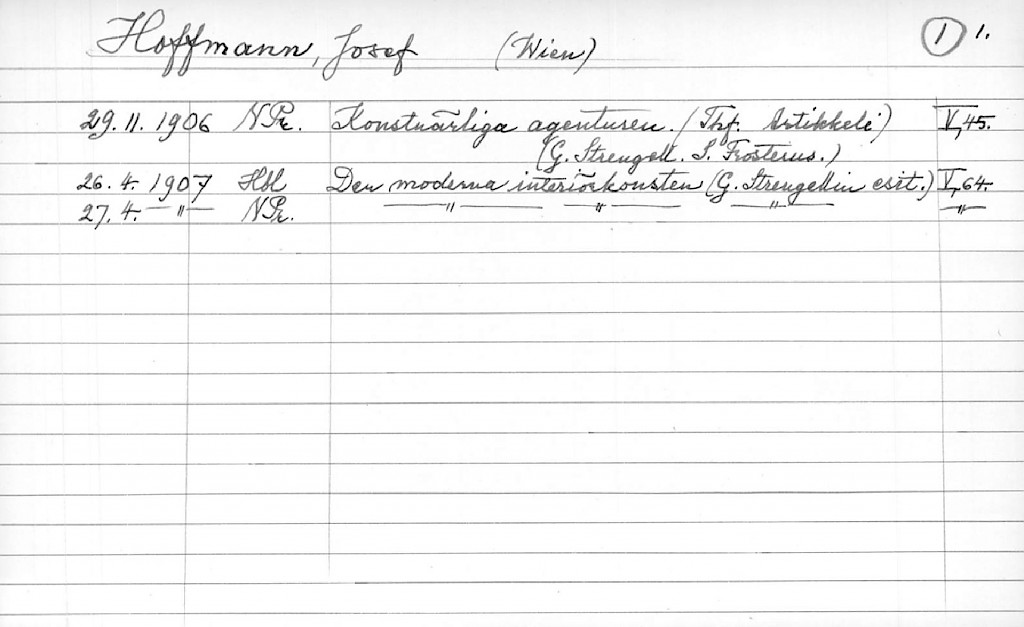 Hoffmann, Josef (Wien) 1 1.
29. 11. 1906 N.Pr. Konstnärliga agenturen. (Thf. Artikkeli) V,45.
(G. Strengell. S. Frosterus.)
26. 4. 1907 Hbl Den moderna interiörkonsten (G. Strengellin esit.) V,64.
27. 4. — " — N.Pr. — " — — " — — " — — " —